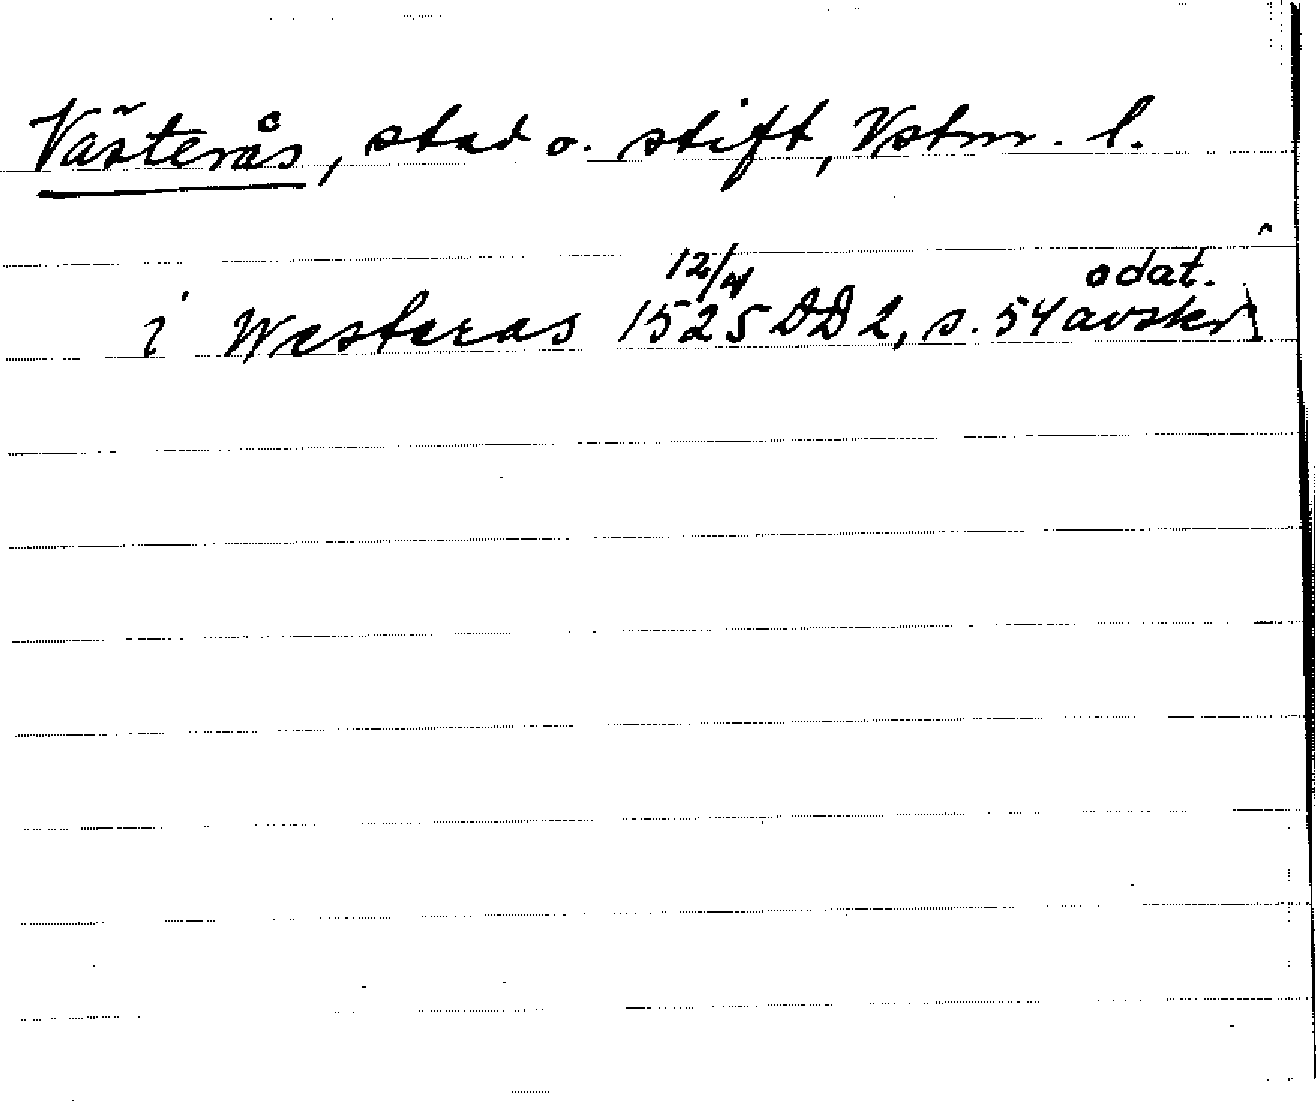 Västerås, stad o. stift, Vstm. l.
i Westeras 12/4 1525 DD 2, s. 54 odat. avskr)